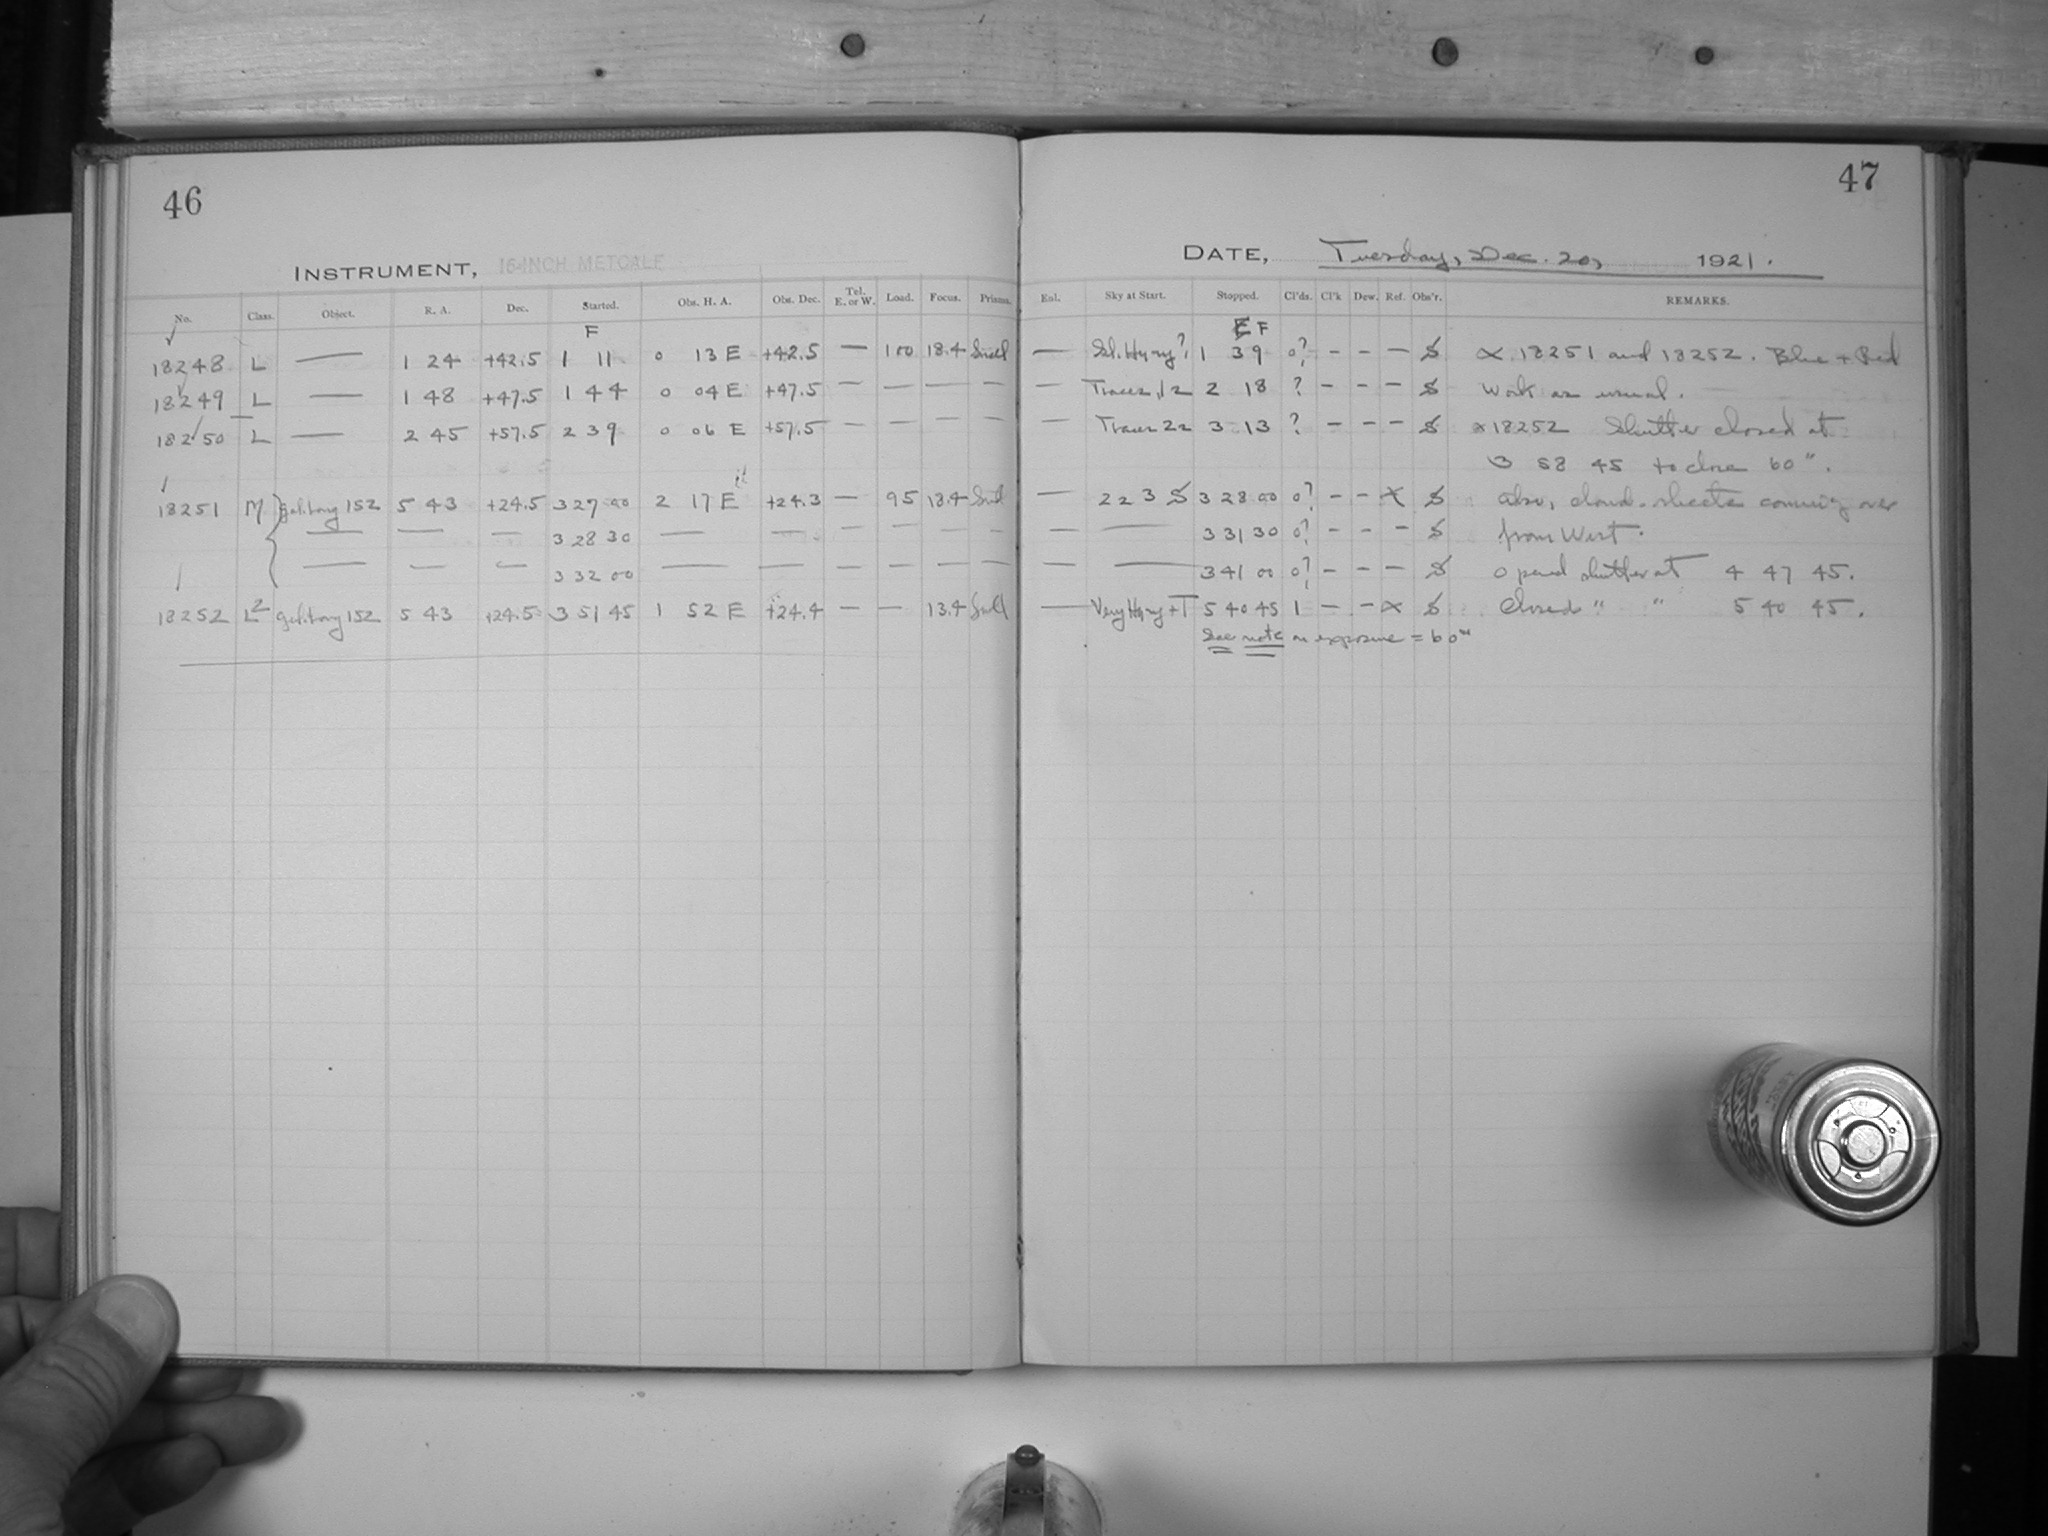 46
47
INSTRUMENT, 16-INCH METCALF
DATE, Tuesday, Dec. 20, 1921.
No. Class. Object. R. A. Dec. Started. Obs. H. A. Obs. Dec. Tel. E. or W. Load. Focus. Prisms. Enl. Sky at Start. Stopped. Cl'ds. Cl'k Dew. Ref. Obs'r. REMARKS.
F F
18248 L — 1 24 +42.5 1 11 0 13 E +42.5 — 100 18.4 — Sl. Hazy? 1 39 0? - - - S 18251 and 18252. Blue + Red
18249 L — 1 48 +47.5 1 44 0 04 E +47.5 — — — — — Traces, 12 2 18 ? - - - S Work as usual.
18250 L — 2 45 +57.5 2 39 0 06 E +57.5 — — — — — Traces 22 3 13 ? - - - S x 18252 Shutter closed at
3 58 45 to close 60".
18251 M gal. Long 152 5 43 +24.5 3 27 00 2 17 E +24.3 — 95 13.4 — 2 2 3 S 3 28 00 0? - - x S also, cloud-sheets coming over
— — — 3 28 30 — — — — — — — — — 3 31 30 0? - - - S from West.
— — — 3 32 00 — — — — — — — — 3 41 00 0? - - - S opened shutter at 4 47 45.
18252 L2 gal. Long 152 5 43 +24.5 3 51 45 1 52 E +24.4 — — 13.4 — Very Hazy + T 5 40 45 1 - - x S Closed " " 5 40 45.
See note on exposure = 60m